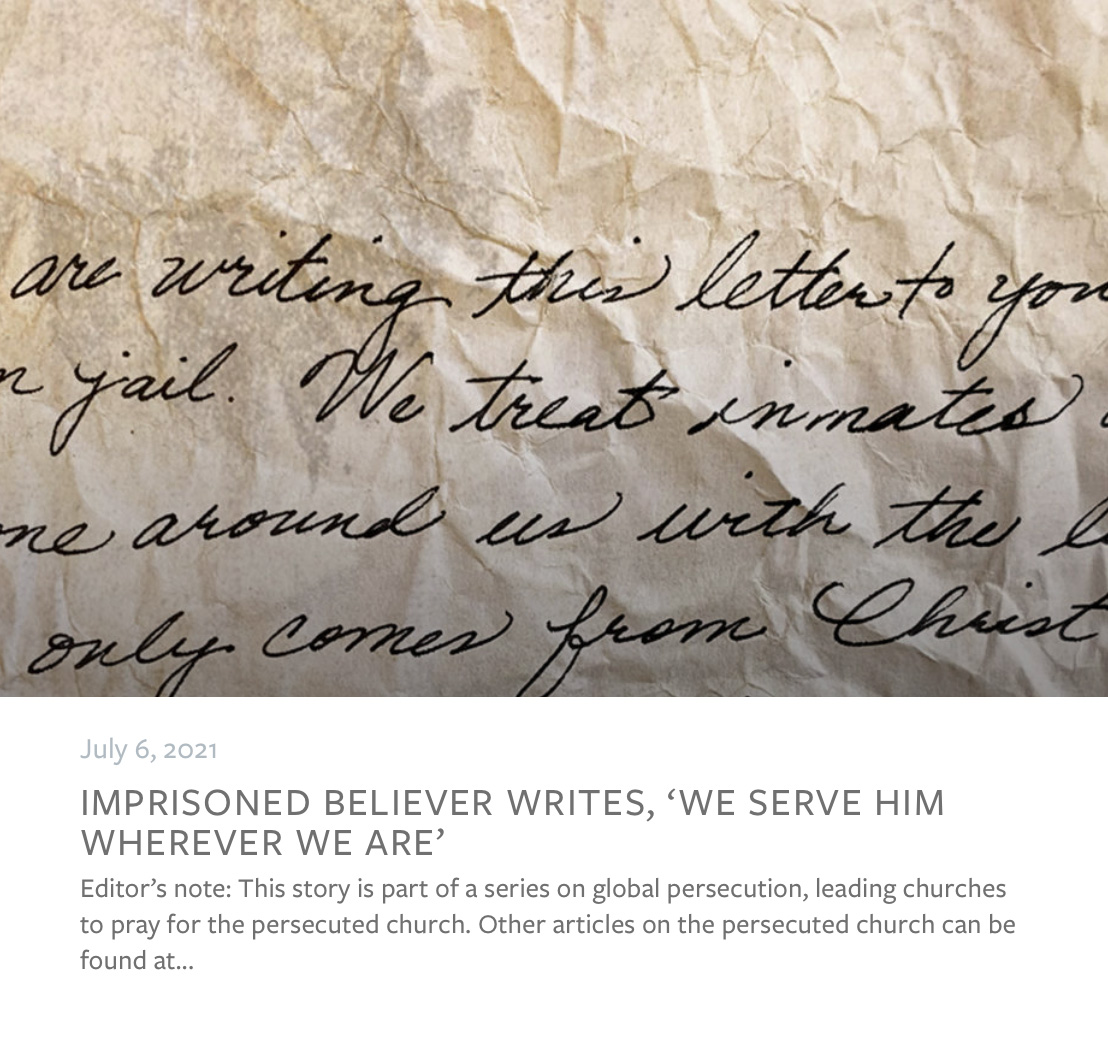 are writing this letter to you
n jail. We treat inmates
ne around us with the
only comes from Christ
July 6, 2021
IMPRISONED BELIEVER WRITES, ‘WE SERVE HIM
WHEREVER WE ARE’
Editor’s note: This story is part of a series on global persecution, leading churches
to pray for the persecuted church. Other articles on the persecuted church can be
found at...